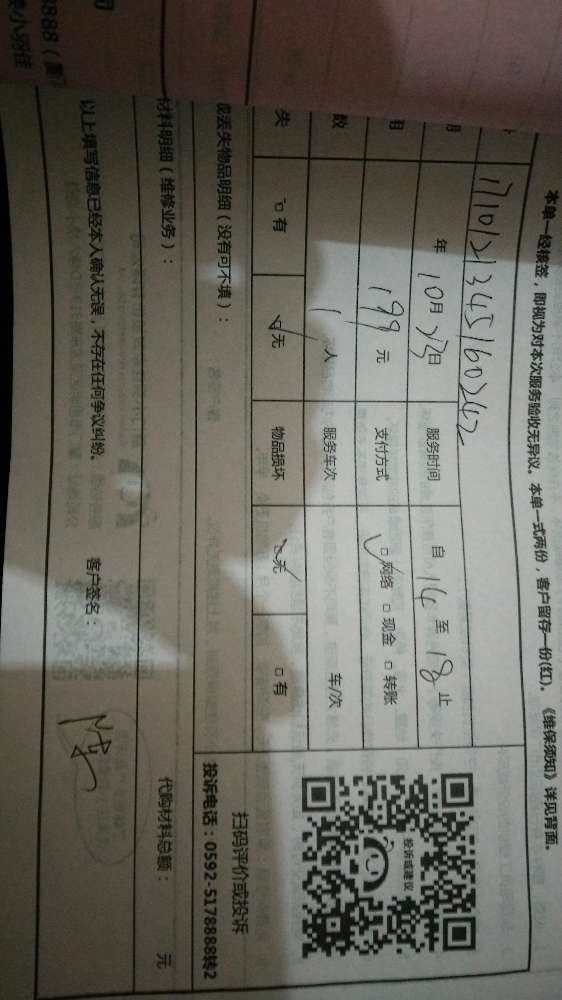 本单一经接签，即视为对本次服务验收无异议。本单一式两份，客户留存一份(红)。《维保须知》详见背面。
1710121345160242
年 10月 23日 服务时间 自 14 至 18 止
用 199 元 支付方式 □网络 □现金 □转账
数 1 人 服务车次 车/次
失 □有 □无 物品损坏 □无 □有
或丢失物品明细（没有可不填）：
材料明细（维修业务）：
代购材料总额： 元
以上填写信息已经本人确认无误，不存在任何争议纠纷。 客户签名：
投诉或建议
扫码评价或投诉
投诉电话：0592-5178888转2